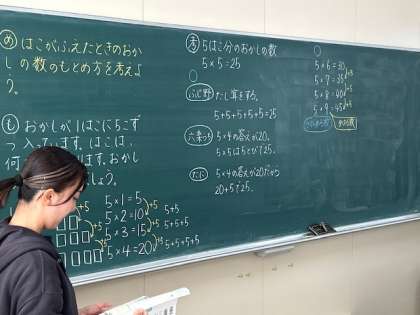 め はこがふえたときのおか
しの数のもとめ方を考えよ
う。
も おかしが1はこに5こず
つ入っています。はこは、
何
す。おかし
しょう。
5×1=5
5×2=10 5+5
5×3=15 5+5+5
5×4=20 5+5+5+5
+5
+5
+5
考 5はこ分のおかしの数
5×5=25
ふじ野 たし算をする。
5+5+5+5+5=25
5×4の答えが20。
5×5は5とびで25。
5×4の答えが20だから
20+5で25。
5×6=30
5×7=35
5×8=40
5×9=45
+5
+5
+5
かける数